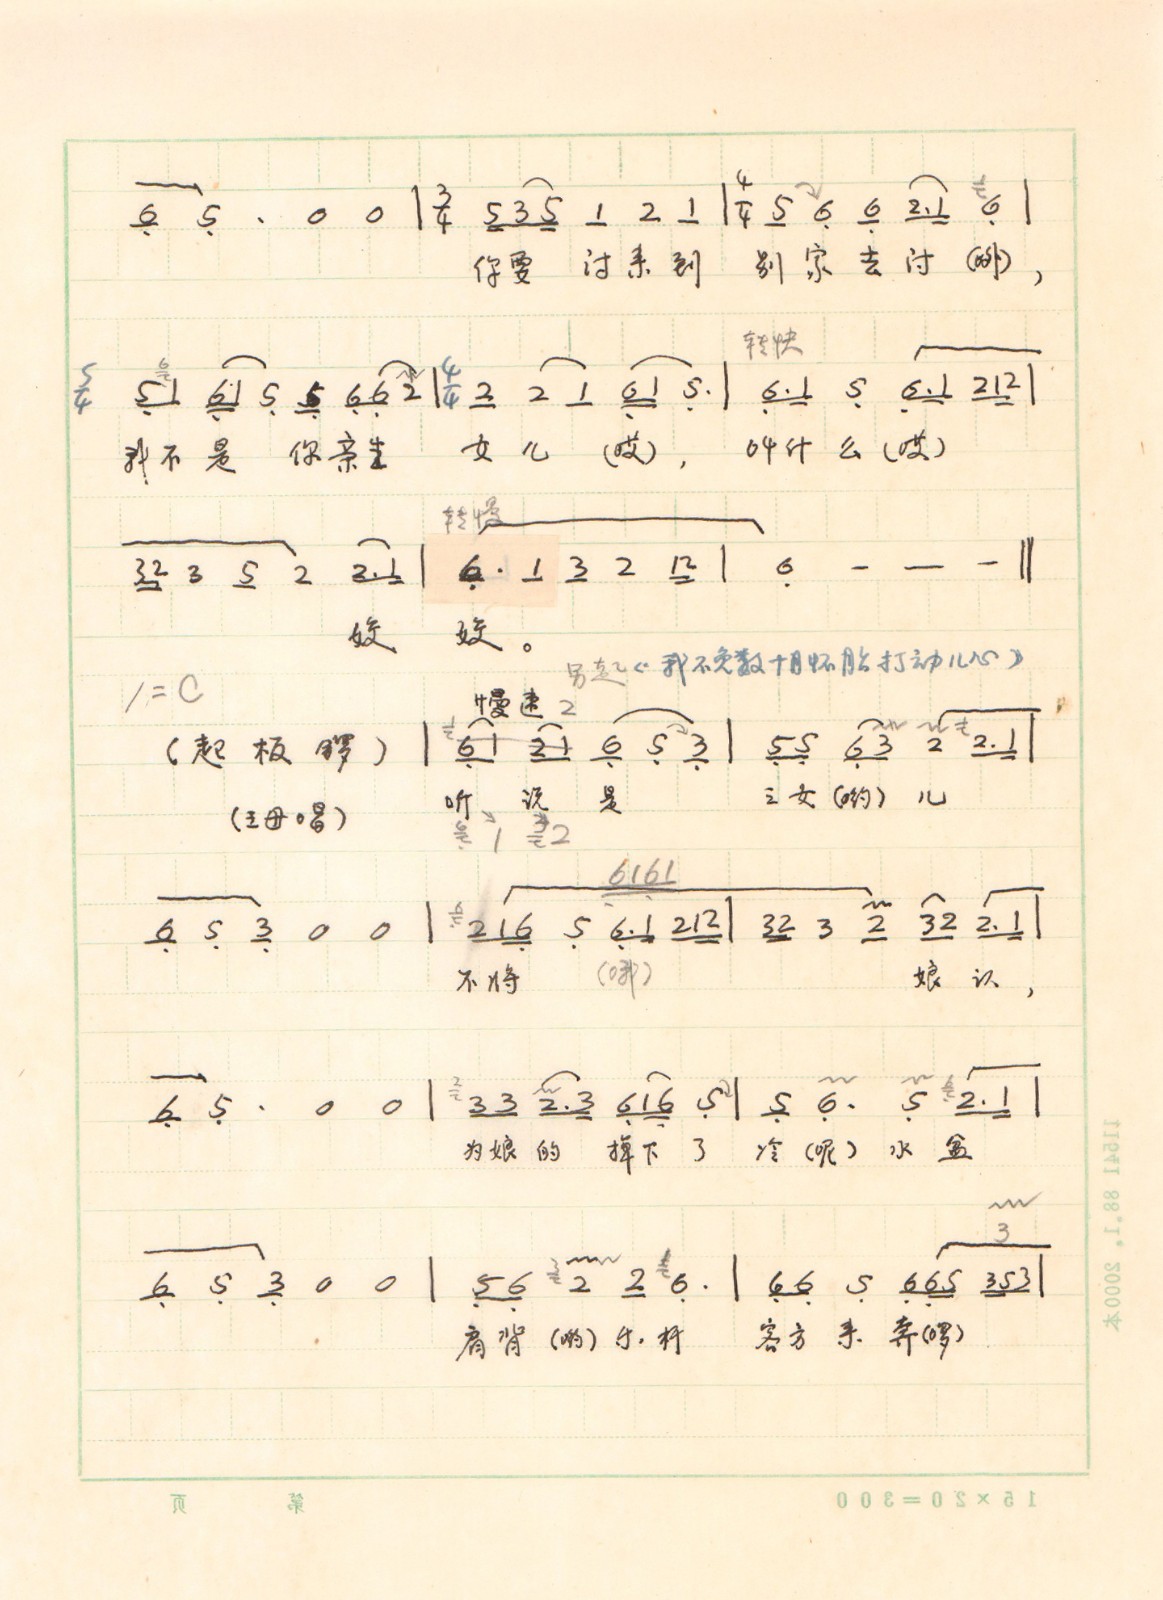 6 5 · 0 0 | 3/4 5 3 5 1 2 1 | 4/4 5 6 6 2·1 6 |
你要 讨米到 别家去讨(哟),
转快
5/4 5 1 6 1 5 5 6 6 2 | 4/4 2 2 1 6 1 5· | 6·1 5 6·1 2 1 2 |
我不是 你亲生 女儿 (哎), 叫什么(哎)
转慢
3 2 3 5 2 2·1 | 6·1 3 2 1 2 | 6 — — — ‖
姣 姣。
另起《我不免数十月怀胎打动儿心》
1=C 慢速 2
(起板锣) | 6 1 2 1 6 5 3 | 5 5 6 3 2 2·1 |
(王母唱) 听说是 三女(哟)儿
1 2
6 1 6 1
6 5 3 0 0 | 2 1 6 5 6·1 2 1 2 | 3 2 3 2 3 2 2·1 |
不将 (哦) 娘认,
6 5 · 0 0 | 3 3 2·3 6 1 6 5 | 5 6· 5 2·1 |
为娘的 掉下了 冷(呢)水盆
3
6 5 3 0 0 | 5 6 2 2 6· | 6 6 5 6 6 5 3 5 3 |
肩背(哟) 杆 客方来奔(啰)
11541 88.1. 2000本
第 页 15×20=300